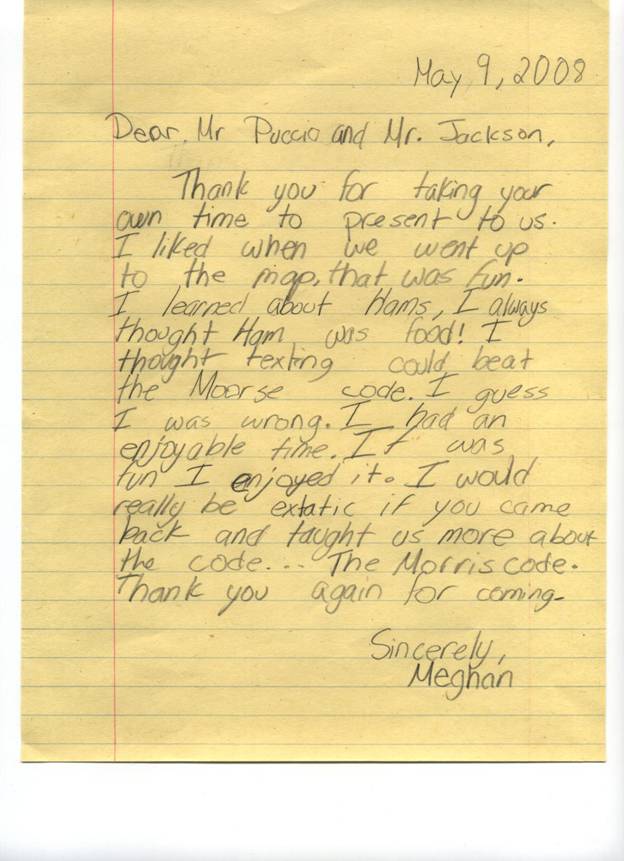 May 9, 2008
Dear, Mr Puccio and Mr. Jackson,
Thank you for taking your
own time to present to us.
I liked when we went up
to the map, that was fun.
I learned about Hams, I always
thought Ham was food! I
thought texting could beat
the Moorse code. I guess
I was wrong. I had an
enjoyable time. It was
fun I enjoyed it. I would
really be extatic if you came
back and taught us more about
the code... The Morris code.
Thank you again for coming.
Sincerely,
Meghan